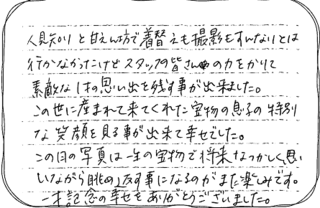 人見知りと甘えん坊で着替えも撮影もすんなりとは
行かなかったけどスタッフの皆さんの力をかりて
素敵な1才の思い出を残す事が出来ました。
この世に産まれて来てくれた宝物の息子の特別
な笑顔を見る事が出来て幸せでした。
この日の写真は一生の宝物で将来なつかしく思
いながら眺め返す事になるのがまた楽しみです。
一生記念の幸せをありがとうございました。